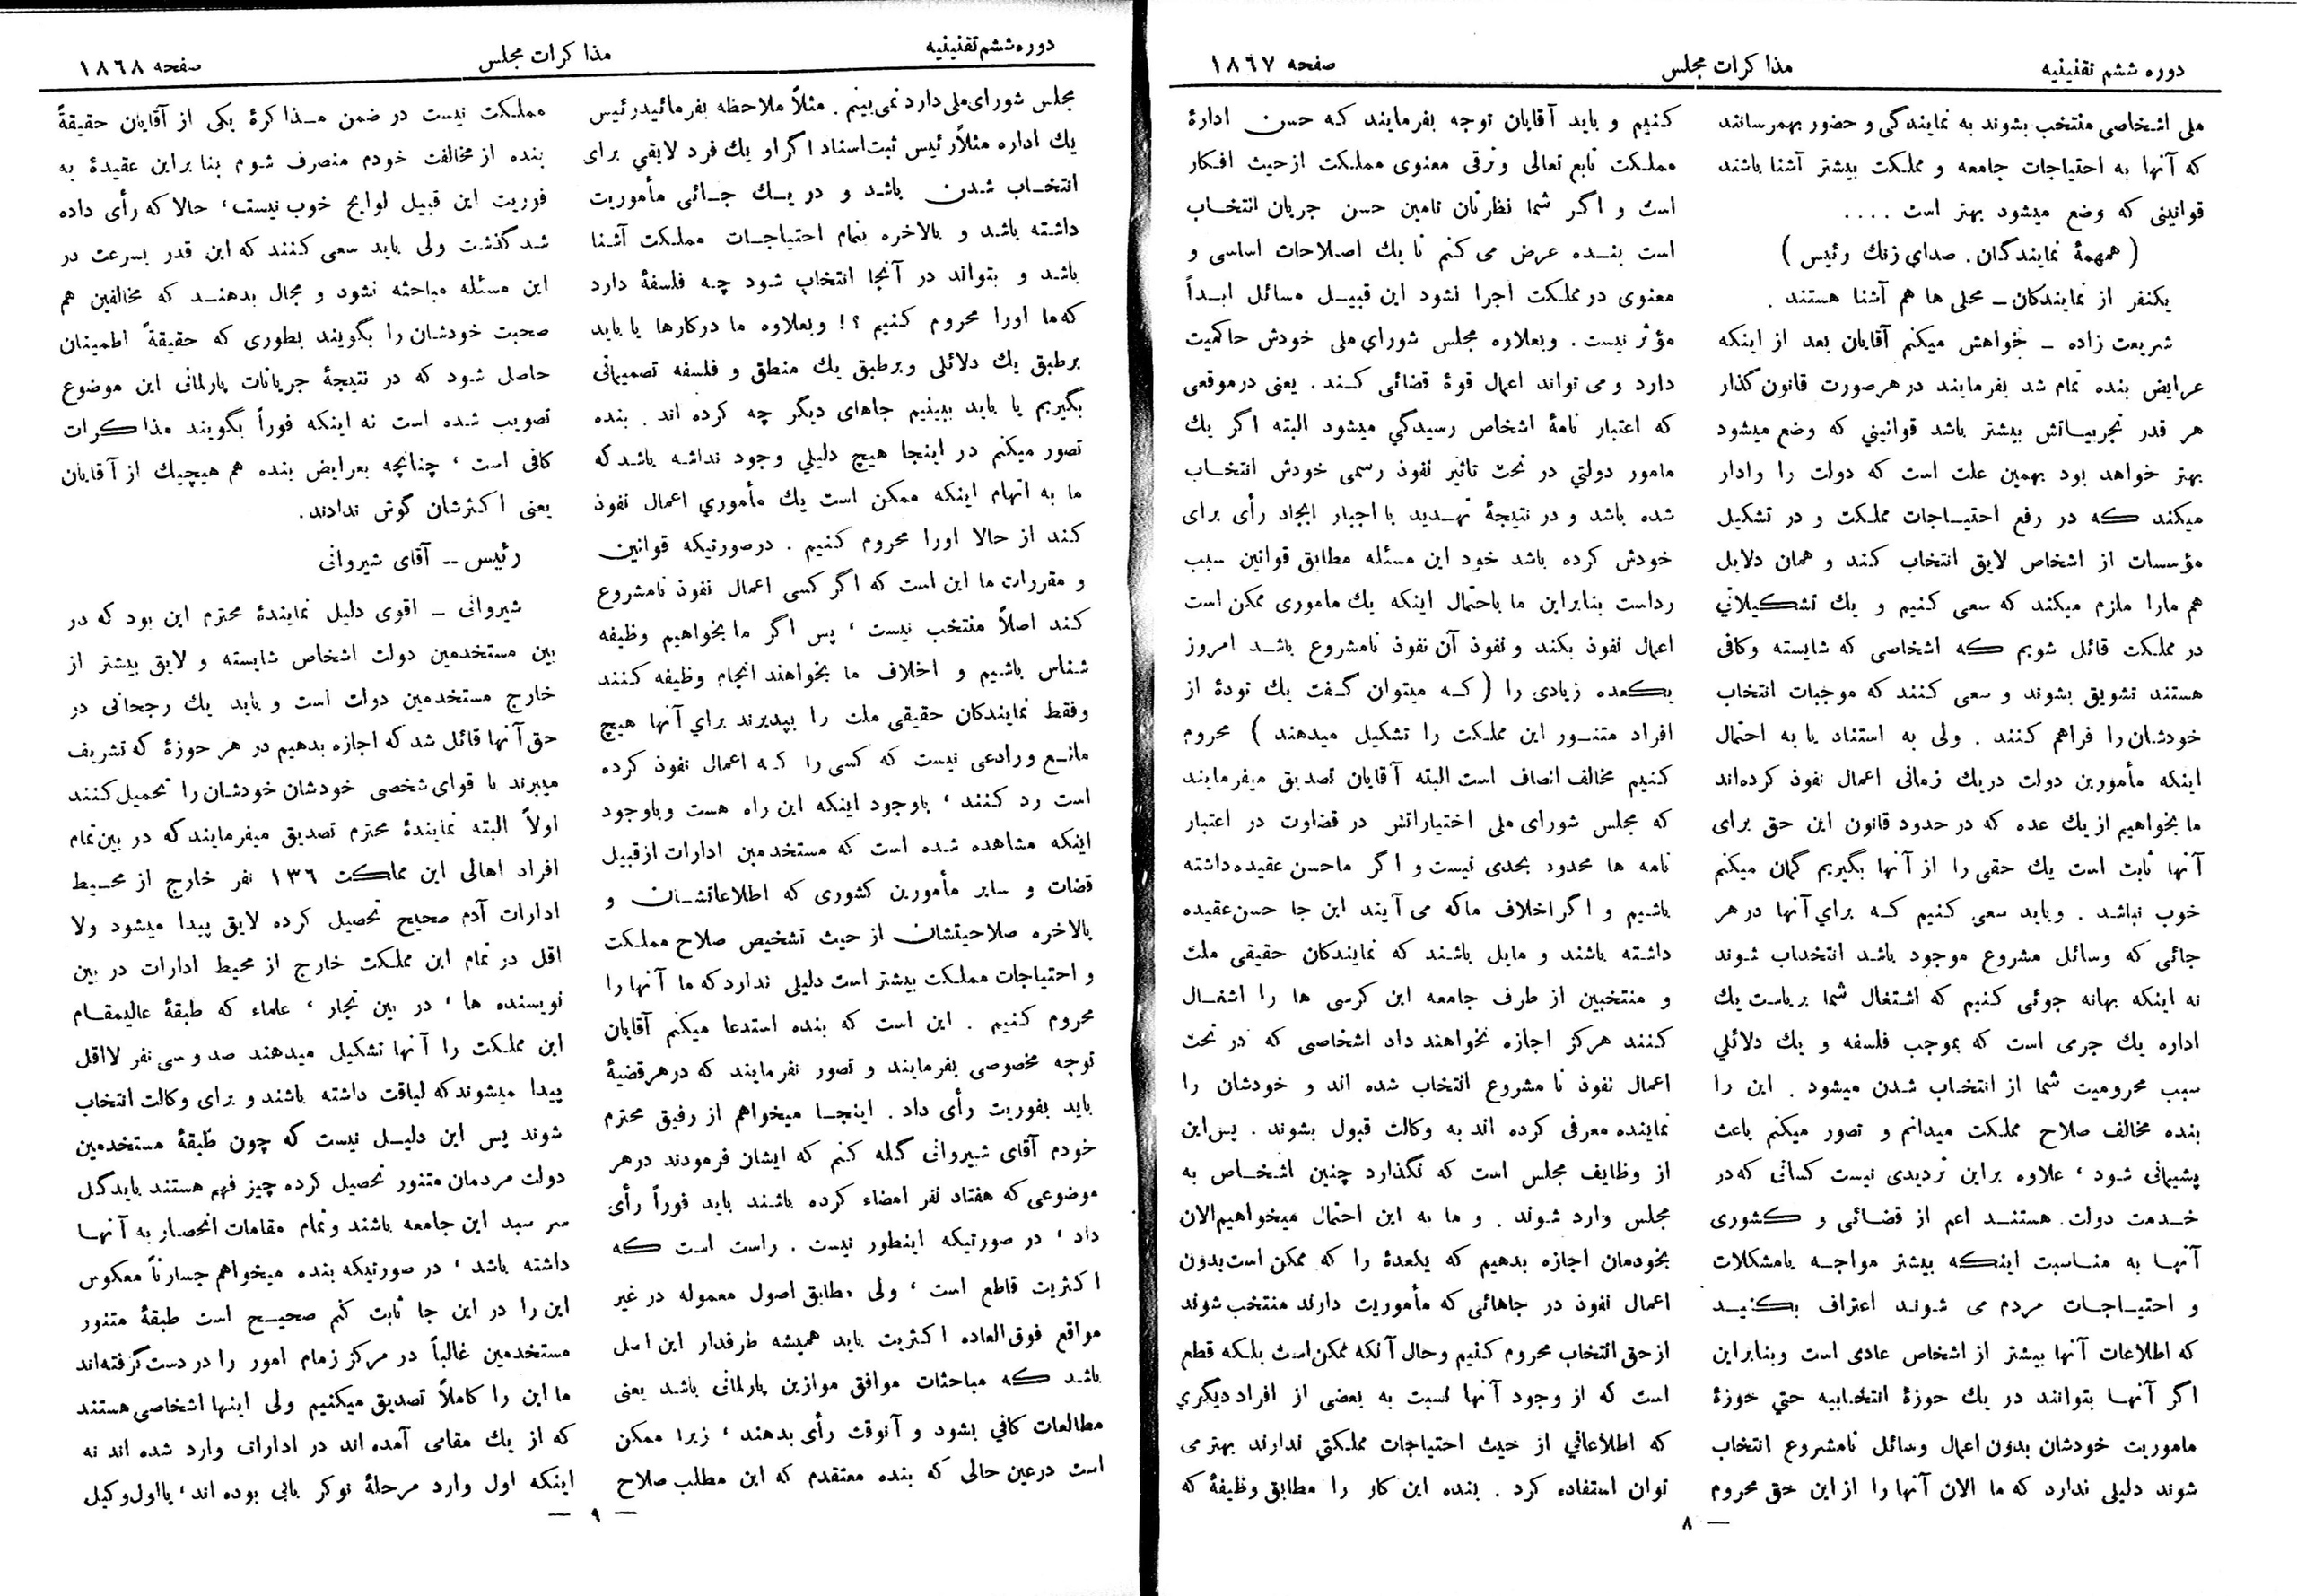 دوره ششم تقنینیه
مذاکرات مجلس
صفحه ۱۸٦۷
ملی اشخاصی منتخب بشوند به نمایندگی و حضور بهمرسانند
که آنها به احتیاجات جامعه و مملکت بیشتر آشنا باشند
قوانینی که وضع میشود بهتر است ....
( همهمهٔ نمایندگان . صدای زنك رئیس )
یکنفر از نمایندکان ــ محلی ها هم آشنا هستند .
شریعت زاده ــ خواهش میکنم آقایان بعد از اینکه
عرایض بنده تمام شد بفرمایند در هر صورت قانون گذار
هر قدر تجربیاتش بیشتر باشد قوانیني که وضع میشود
بهتر خواهد بود بهمین علت است که دولت را وادار
میکند که در رفع احتیاجات مملکت و در تشکیل
مؤسسات از اشخاص لایق انتخاب کند و همان دلایل
هم مارا ملزم میکند که سعی کنیم و یك تشکیلاتي
در مملکت قائل شویم که اشخاصی که شایسته وکافی
هستند تشویق بشوند و سعی کنند که موجبات انتخاب
خودشان را فراهم کنند . ولی به استناد یا به احتمال
اینکه مأمورین دولت در یك زمانی اعمال نفوذ کرده‌اند
ما بخواهیم از یك عده که در حدود قانون این حق برای
آنها ثابت است یك حقی را از آنها بگیریم گمان میکنم
خوب نباشد . وباید سعی کنیم که براي آنها در هر
جائی که وسائل مشروع موجود باشد انتخاب شوند
نه اینکه بهانه جوئی کنیم که اشتغال شما بریاست یك
اداره یك جرمی است که بموجب فلسفه و یك دلائلي
سبب محرومیت شما از انتخاب شدن میشود . این را
بنده مخالف صلاح مملکت میدانم و تصور میکنم باعث
پشیمانی شود ، علاوه براین تردیدی نیست کسانی که در
خدمت دولت هستند اعم از قضائی و کشوری
آنها به مناسبت اینکه بیشتر مواجه بامشکلات
و احتیاجات مردم می شوند اعتراف بکنید
که اطلاعات آنها بیشتر از اشخاص عادی است وبنابراین
اگر آنها بتوانند در یك حوزهٔ انتخابیه حتي حوزهٔ
ماموریت خودشان بدون اعمال وسائل نامشروع انتخاب
شوند دلیلی ندارد که ما الان آنها را از این حق محروم
کنیم و باید آقایان توجه بفرمایند که حسن ادارهٔ
مملکت تابع تعالی و ترقی معنوی مملکت از حیث افکار
است و اگر شما نظرتان تامین حسن جریان انتخاب
است بنده عرض می کنم تا یك اصلاحات اساسی و
معنوی در مملکت اجرا نشود این قبیل مسائل ابداً
مؤثر نیست . وبعلاوه مجلس شوراي ملی خودش حاکمیت
دارد و می تواند اعمال قوهٔ قضائی کند . یعنی در موقعی
که اعتبار نامهٔ اشخاص رسیدگي میشود البته اگر یك
مامور دولتي در تحت تاثیر نفوذ رسمی خودش انتخاب
شده باشد و در نتیجهٔ تهدید یا اجبار ایجاد رأی برای
خودش کرده باشد خود این مسئله مطابق قوانین سبب
رداست بنابراین ما باحتمال اینکه یك ماموری ممکن است
اعمال نفوذ بکند و نفوذ آن نفوذ نامشروع باشد امروز
یکعده زیادی را ( که میتوان گفت یك تودهٔ از
افراد متنور این مملکت را تشکیل میدهند ) محروم
کنیم مخالف انصاف است البته آقایان تصدیق میفرمایند
که مجلس شورای ملی اختیاراتش در قضاوت در اعتبار
نامه ها محدود بحدی نیست و اگر ماحسن عقیده داشته
باشیم و اگر اخلاف ماکه می آیند این جا حسن عقیده
داشته باشند و مایل باشند که نمایندکان حقیقی ملت
و منتخبین از طرف جامعه این کرسی ها را اشغال
کنند هرکز اجازه نخواهند داد اشخاصی که در تحت
اعمال نفوذ نا مشروع انتخاب شده اند و خودشان را
نماینده معرفی کرده اند به وکالت قبول بشوند . پس این
از وظایف مجلس است که نگذارد چنین اشخاص به
مجلس وارد شوند . و ما به این احتمال میخواهیم الان
بخودمان اجازه بدهیم که یکعدهٔ را که ممکن است بدون
اعمال نفوذ در جاهائی که مأموریت دارند منتخب شوند
از حق انتخاب محروم کنیم وحال آنکه ممکن است بلکه قطع
است که از وجود آنها نسبت به بعضی از افراد دیگري
که اطلاعاتي از حیث احتیاجات مملکتي ندارند بهتر می
توان استفاده کرد . بنده این کار را مطابق وظیفهٔ که
— ۸
دوره ششم تقنینیه
مذاکرات مجلس
صفحه ۱۸٦۸
مجلس شورای ملی دارد نمی بینم . مثلاً ملاحظه بفرمائید رئیس
یك اداره مثلاً رئیس ثبت اسناد اگر او یك فرد لایقي برای
انتخاب شدن باشد و در یك جائی مأموریت
داشته باشد و بالاخره بتمام احتیاجات مملکت آشنا
باشد و بتواند در آنجا انتخاب شود چه فلسفهٔ دارد
که ما اورا محروم کنیم ؟! وبعلاوه ما درکارها یا باید
برطبق یك دلائلی وبرطبق یك منطق و فلسفه تصمیماتی
بگیریم یا باید ببینیم جاهای دیگر چه کرده اند . بنده
تصور میکنم در اینجا هیچ دلیلي وجود نداشه باشد که
ما به اتهام اینکه ممکن است یك مأموري اعمال نفوذ
کند از حالا اورا محروم کنیم . درصورتیکه قوانین
و مقررات ما این است که اگر کسی اعمال نفوذ نامشروع
کند اصلاً منتخب نیست ، پس اگر ما بخواهیم وظیفه
شناس باشیم و اخلاف ما بخواهند انجام وظیفه کنند
وفقط نمایندکان حقیقی ملت را بپذیرند براي آنها هیچ
مانع ورادعی نیست که کسی را که اعمال نفوذ کرده
است رد کنند ، باوجود اینکه این راه هست وباوجود
اینکه مشاهده شده است که مستخدمین ادارات ازقبیل
قضات و سایر مأمورین کشوری که اطلاعاتشان و
بالاخره صلاحیتشان از حیث تشخیص صلاح مملکت
و احتیاجات مملکت بیشتر است دلیلی ندارد که ما آنها را
محروم کنیم . این است که بنده استدعا میکنم آقایان
توجه مخصوصی بفرمایند و تصور نفرمایند که درهر قضیهٔ
باید بفوریت رأی داد . اینجا میخواهم از رفیق محترم
خودم آقای شیروانی گله کنم که ایشان فرمودند درهر
موضوعی که هفتاد نفر امضاء کرده باشند باید فوراً رأی
داد ، در صورتیکه اینطور نیست . راست است که
اکثریت قاطع است ، ولی مطابق اصول معموله در غیر
مواقع فوق العاده اکثریت باید همیشه طرفدار این اصل
باشد که مباحثات موافق موازین پارلمانی باشد یعنی
مطالعات کافي بشود و آنوقت رأی بدهند ، زیرا ممکن
است درعین حالی که بنده معتقدم که این مطلب صلاح
مملکت نیست در ضمن مذاکرهٔ یکی از آقایان حقیقةً
بنده از مخالفت خودم منصرف شوم بنا براین عقیدهٔ به
فوریت این قبیل لوایح خوب نیست ، حالا که رأی داده
شد گذشت ولی باید سعی کنند که این قدر بسرعت در
این مسئله مباحثه نشود و مجال بدهند که مخالفین هم
صحبت خودشان را بگویند بطوری که حقیقةً اطمینان
حاصل شود که در نتیجهٔ جریانات پارلمانی این موضوع
تصویب شده است نه اینکه فوراً بگویند مذاکرات
کافی است ، چنانچه بعرایض بنده هم هیچیك از آقایان
یعنی اکثرشان گوش ندادند.
رئیس -- آقای شیروانی
شیروانی ــ اقوی دلیل نمایندهٔ محترم این بود که در
بین مستخدمین دولت اشخاص شایسته و لایق بیشتر از
خارج مستخدمین دولت است و باید یك رجحانی در
حق آنها قائل شد که اجازه بدهیم در هر حوزهٔ که تشریف
میبرند با قوای شخصی خودشان خودشان را تحمیل کنند
اولاً البته نمایندهٔ محترم تصدیق میفرمایند که در بین تمام
افراد اهالی این مملکت ۱۳٦ نفر خارج از محیط
ادارات آدم صحیح تحصیل کرده لایق پیدا میشود ولا
اقل در تمام این مملکت خارج از محیط ادارات در بین
نویسنده ها ، در بین تجار ، علماء که طبقهٔ عالیمقام
این مملکت را آنها تشکیل میدهند صد و سی نفر لااقل
پیدا میشوند که لیاقت داشته باشند و برای وکالت انتخاب
شوند پس این دلیل نیست که چون طبقهٔ مستخدمین
دولت مردمان متنور تحصیل کرده چیز فهم هستند باید گل
سر سبد این جامعه باشند و تمام مقامات انحصار به آنها
داشته باشد ، در صورتیکه بنده میخواهم جسارتاً معکوس
این را در این جا ثابت کنم صحیح است طبقهٔ متنور
مستخدمین غالباً در مرکز زمام امور را در دست گرفته‌اند
ما این را کاملاً تصدیق میکنیم ولی اینها اشخاصی هستند
که از یك مقامی آمده اند در ادارات وارد شده اند نه
اینکه اول وارد مرحلهٔ نوکر بابی بوده اند ، یا اول وکیل
— ۹ —